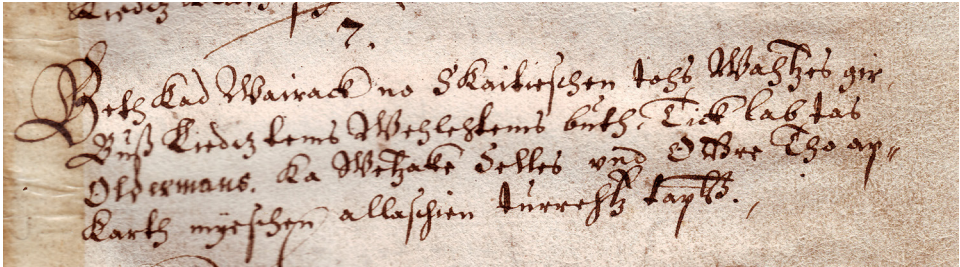 7.
Beth Kad Wairack no Skaitieschen tohs Wahtzes gir
Buhß Kiedz tems Wehlehtems buth, Tick lab tas
Oldermans. Ka Wetzake Selles vnd Ottre Tho ap-
Karth myeschen allaschien turrehtz tapß.